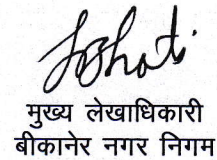 मुख्य लेखाधिकारी
बीकानेर नगर निगम